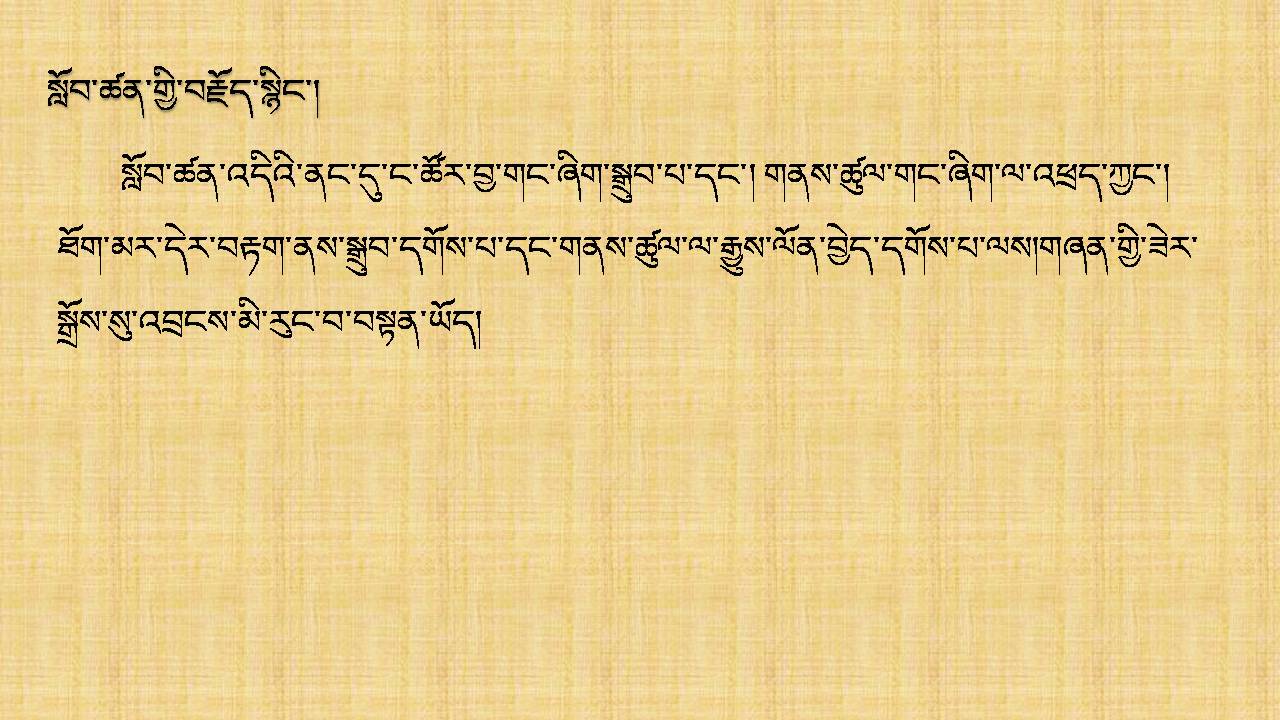 སློབ་ཚན་གྱི་བརྗོད་སྙིང་།
སློབ་ཚན་འདིའི་ནང་དུ་ང་ཚོར་བྱ་གང་ཞིག་སྒྲུབ་པ་དང་། གནས་ཚུལ་གང་ཞིག་ལ་འཕྲད་ཀྱང་།
ཐོག་མར་དེར་བརྟག་ནས་སྒྲུབ་དགོས་པ་དང་གནས་ཚུལ་ལ་རྒྱུས་ལོན་བྱེད་དགོས་པ་ལས།གཞན་གྱི་ཟེར་
སྒྲོས་སུ་འབྲངས་མི་རུང་བ་བསྟན་ཡོད།